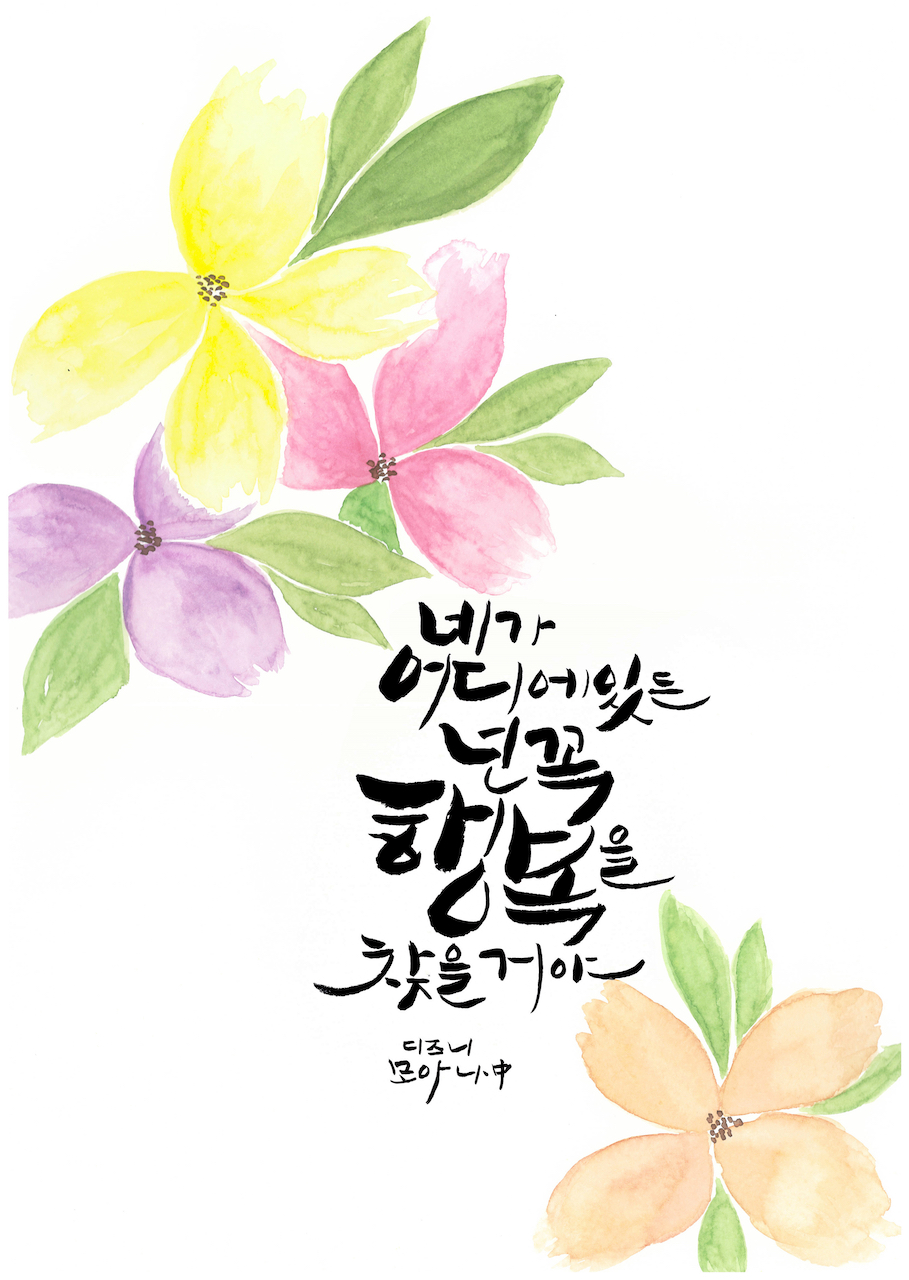 네가
어디에있든
넌꼭
행복을
찾을거야
디즈니
모아나中